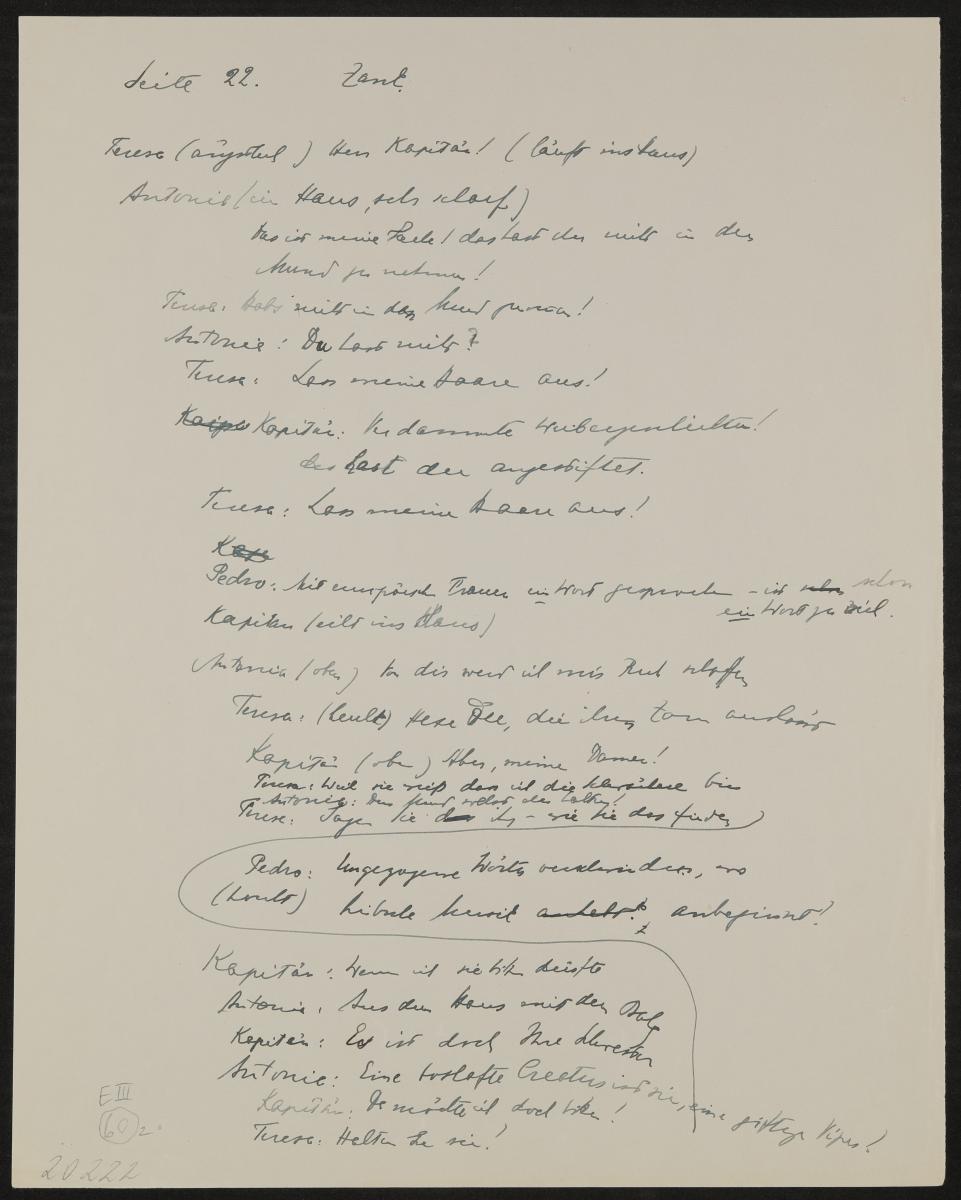 Seite 22. Zank.
Teresa (ängstlich) Herr Kapitän! (läuft ins Haus)
Antonia (im Haus, sehr scharf)
Das ist meine Sache! das hast du nicht in den
Mund zu nehmen!
Teresa: Habs nicht in den Mund genommen!
Antonia: Du hast nicht?
Teresa: Lass meine Haare aus!
Kapitän: Verdammte Weibergeschichten!
das hast du angestiftet.
Teresa: Lass meine Haare aus!
Pedro: Mit europäisch Frauen ein Wort gesprochen – ist schon
ein Wort zu viel.
Kapitän (eilt ins Haus)
Antonia (oben) Vor dir werd ich mir Ruh schaffen
Teresa: (heult) Hexe, die ihren Zorn auslässt
Kapitän (oben) Aber, meine Damen!
Teresa: Weil sie weiß dass ich die bin
Antonia: Den Mund halten!
Teresa: Sagen Sie ihr – wie Sie das finden
Pedro: Ungezogene Wörter verschwinden, wo
(horcht) hübsche Musik anbeginnt!
Kapitän: Wenn ich sie bitten dürfte
Antonia: Aus dem Haus mit dem Balg
Kapitän: Es ist doch Ihre Schwester
Antonia: Eine boshafte Creatur ist sie, eine giftige Viper!
Kapitän: Da möchte ich doch bitten!
Teresa: Halten Sie sie!
E III
60 2
20222